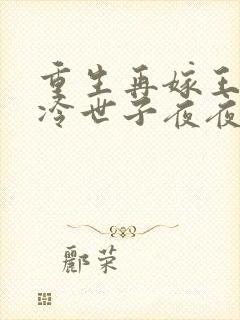 重生再嫁王
冷世子夜夜
郦荣